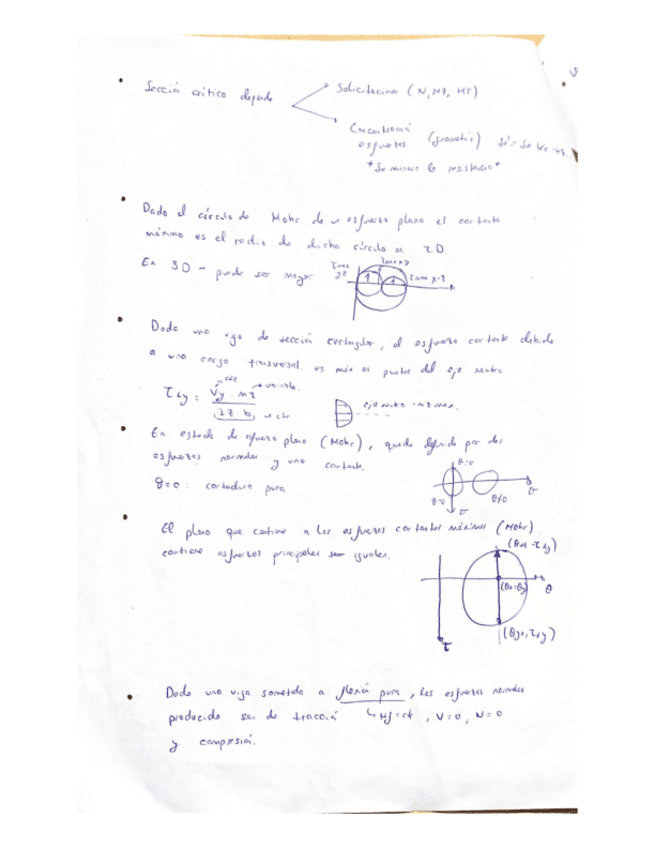 Sección crítico depende
Solicitacion (N, Mf, MT)
Concentración
esfuerzos (geometría)
Dado el círculo de Mohr de un esfuerzo plano el cortante
máximo es el radio de dicho círculo en 2D.
En 3D - puede ser mayor
Dada una viga de sección rectangular, el esfuerzo cortante debido
a una carga transversal es máx en puntos del eje neutro
variable
τxy = Vy · mz
Iz · b
En estado de esfuerzo plano (Mohr), queda definido por dos
esfuerzos normales y uno cortante.
θ=0: cortadura pura
θ=0
θ=0
θ≠0
σ
El plano que contiene a los esfuerzos cortantes máximos (Mohr)
contiene esfuerzos principales ser iguales.
τ
Dada una viga sometida a flexión pura, los esfuerzos normales
producido ser de tracción Mf=cte, V=0, N=0
y compresión.